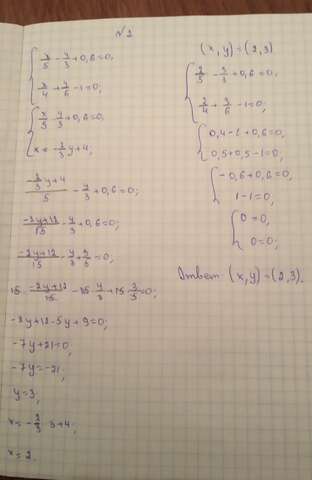 №2
{ x/5 - y/3 + 0,6 = 0,
x/4 + y/6 - 1 = 0;
{ x/5 - y/3 + 0,6 = 0,
x = -2/3 y + 4;
(-2/3 y + 4)/5 - y/3 + 0,6 = 0;
(-2y + 12)/15 - y/3 + 0,6 = 0;
(-2y + 12)/15 - y/3 + 3/5 = 0;
15 · (-2y + 12)/15 - 15 · y/3 + 15 · 3/5 = 0;
-2y + 12 - 5y + 9 = 0;
-7y + 21 = 0;
-7y = -21;
y = 3;
x = -2/3 · 3 + 4;
x = 2.
(x, y) = (2, 3)
{ 2/5 - 3/3 + 0,6 = 0,
2/4 + 3/6 - 1 = 0;
{ 0,4 - 1 + 0,6 = 0,
0,5 + 0,5 - 1 = 0;
{ -0,6 + 0,6 = 0,
1 - 1 = 0;
{ 0 = 0,
0 = 0;
Ответ: (x, y) = (2, 3).